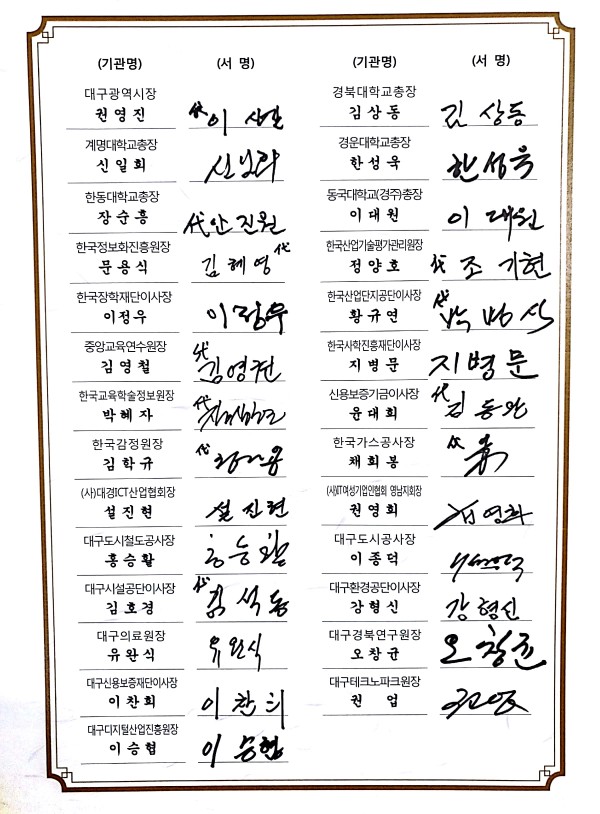 (기관명) (서 명) (기관명) (서 명)
대구광역시장
권영진 代 이
경북대학교총장
김상동 김 상동
계명대학교총장
신일희 신일희
경운대학교총장
한성욱 한성욱
한동대학교총장
장순흥 代 안진원
동국대학교(경주)총장
이대원 이 대원
한국정보화진흥원장
문용식 김혜영 代
한국산업기술평가관리원장
정양호 代 조기현
한국장학재단이사장
이정우 이정우
한국산업단지공단이사장
황규연 代
중앙교육연수원장
김영철 代 김영권
한국사학진흥재단이사장
지병문 지병문
한국교육학술정보원장
박혜자 代
신용보증기금이사장
윤대희 代 김
한국감정원장
김학규 代
한국가스공사장
채희봉
(사)대경ICT산업협회장
설진현 설진현
(사)IT여성기업인협회 영남지회장
권영희 권영희
대구도시철도공사장
홍승활 홍승활
대구도시공사장
이종덕
대구시설공단이사장
김호경 代 김석동
대구환경공단이사장
강형신 강형신
대구의료원장
유완식 유완식
대구경북연구원장
오창균 오창균
대구신용보증재단이사장
이찬희 이찬희
대구테크노파크원장
권 업
대구디지털산업진흥원장
이승협 이승협